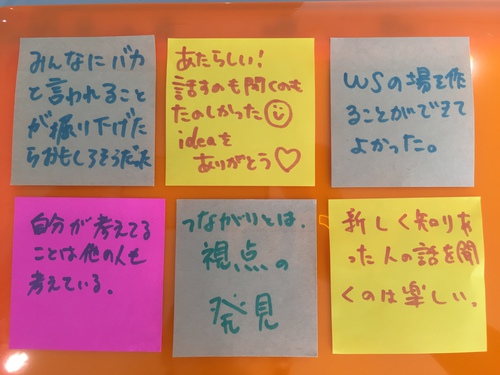 みんなにバカ
と言われること
が掘り下げた
らおもしろそうだった
あたらしい!
話すのも聞くのも
たのしかった☺
ideaを
ありがとう♡
WSの場を作
ることができて
よかった。
自分が考えてる
ことは他の人も
考えている。
つながりとは、
視点の
発見
新しく知りあ
った人の話を聞
くのは楽しい。